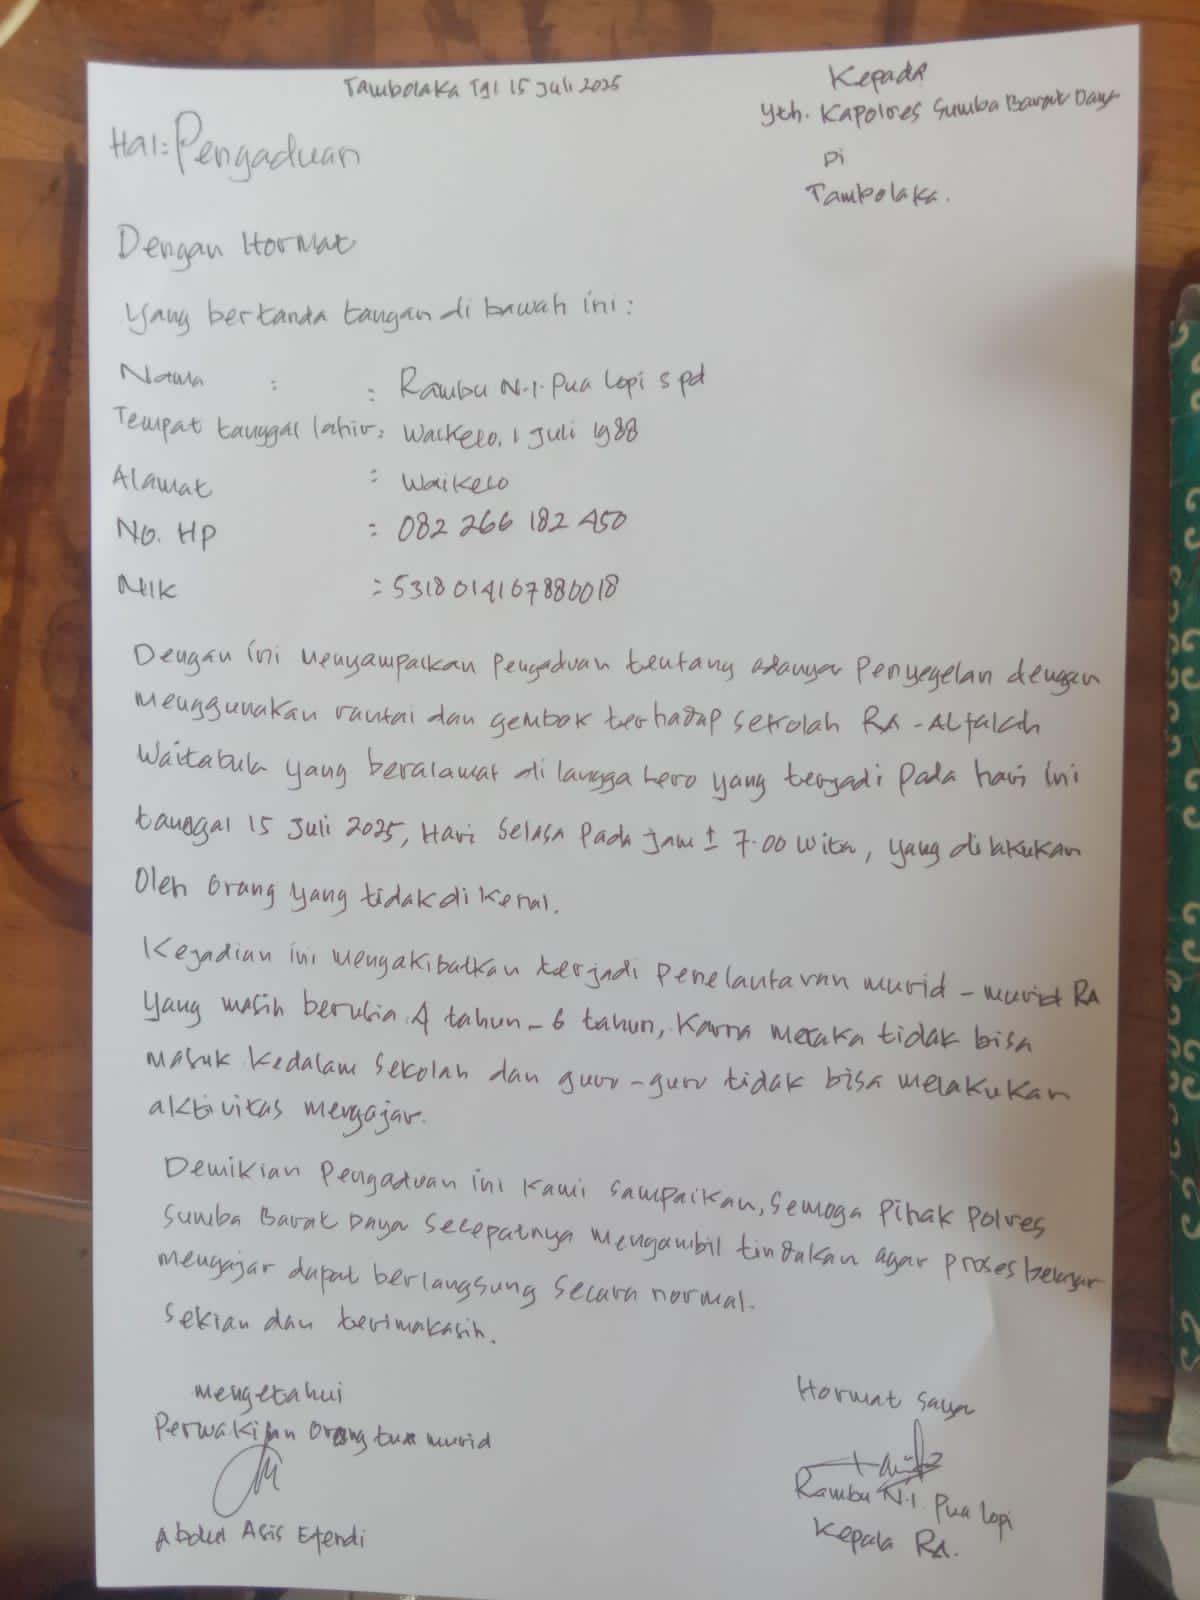 Tambolaka Tgl 15 Juli 2025
Kepada
Yth. Kapolres Sumba Barat Daya
Di
Tambolaka.
Hal: Pengaduan
Dengan Hormat
Yang bertanda tangan di bawah ini:
Nama : : Rambu N.I. Pua Lopi S pd
Tempat tanggal lahir: Waikelo, 1 Juli 1988
Alamat : Waikelo
No. HP : 082 266 182 450
NIK : 5318 014107880018
Dengan ini menyampaikan pengaduan tentang adanya Penyegelan dengan
menggunakan rantai dan gembok terhadap sekolah RA - ALfalah
Waitabula yang beralamat di langga lero yang terjadi pada hari ini
tanggal 15 Juli 2025, Hari Selasa Pada jam ± 7.00 wita, yang di lakukan
Oleh orang yang tidak di kenal.
Kejadian ini mengakibatkan terjadi penelantaran murid - murid RA
yang masih berusia 4 tahun - 6 tahun, Karna meraka tidak bisa
masuk kedalam sekolah dan guru - guru tidak bisa melakukan
aktivitas mengajar.
Demikian Pengaduan ini kami sampaikan, semoga Pihak Polres
Sumba Barat Daya secepatnya mengambil tindakan agar proses belajar
mengajar dapat berlangsung secara normal.
Sekian dan terimakasih.
mengetahui
Perwakilan Orang tua murid
Abdul Asis Efendi
Hormat saya
Rambu N.I. Pua Lopi
Kepala RA.